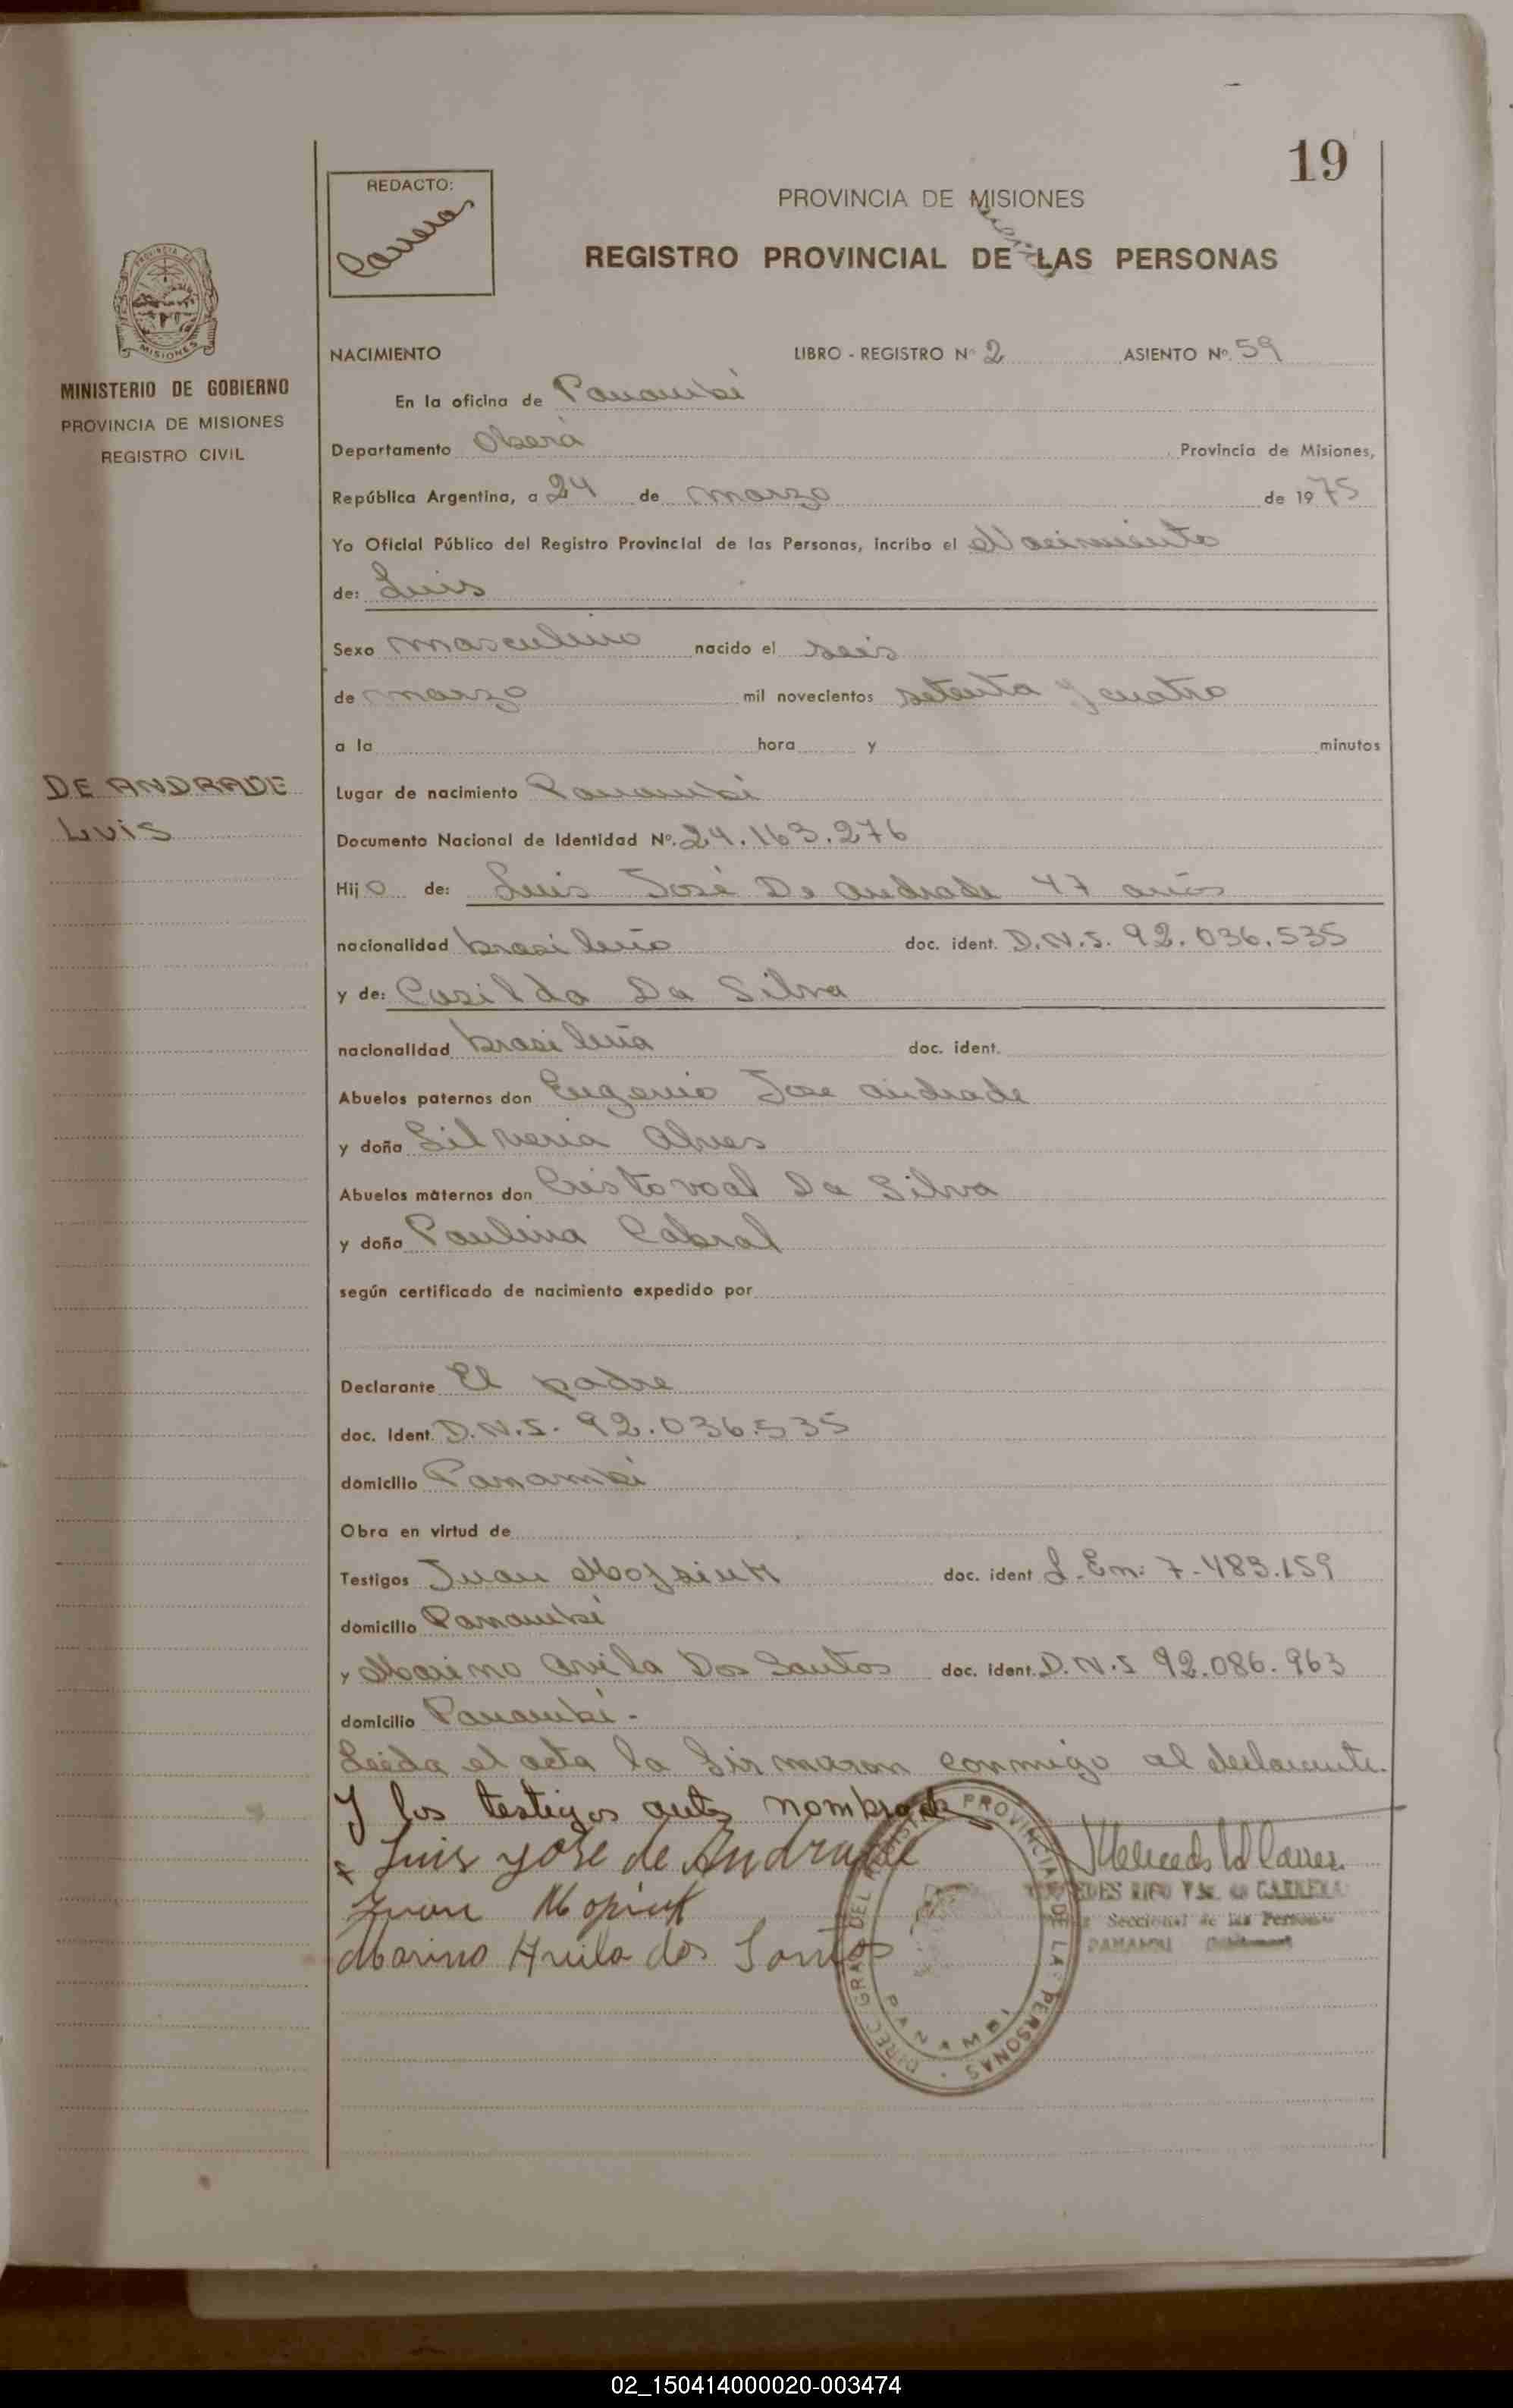 19
REDACTO:
Carrera
PROVINCIA DE MISIONES
REGISTRO PROVINCIAL DE LAS PERSONAS
MISIONES
MINISTERIO DE GOBIERNO
PROVINCIA DE MISIONES
REGISTRO CIVIL
NACIMIENTO LIBRO - REGISTRO Nº 2 ASIENTO Nº 59
En la oficina de Panambi
Departamento Oberá Provincia de Misiones,
República Argentina, a 24 de marzo de 1975
Yo Oficial Público del Registro Provincial de las Personas, incribo el Nacimiento
de: Luis
Sexo masculino nacido el seis
de marzo mil novecientos setenta y cuatro
a la hora y minutos
DE ANDRADE
Luis
Lugar de nacimiento Panambi
Documento Nacional de Identidad Nº. 24.163.276
Hijo de: Luis José De Andrade 47 años
nacionalidad brasileño doc. ident. D.N.I. 92.036.535
y de: Casilda Da Silva
nacionalidad brasileña doc. ident.
Abuelos paternos don Eugenio Jose Andrade
y doña Silveria Alves
Abuelos maternos don Cristovoal Da Silva
y doña Paulina Cabral
según certificado de nacimiento expedido por
Declarante El padre
doc. Ident. D.N.I. 92.036.535
domicilio Panambi
Obra en virtud de
Testigos Juan doc. ident L.En: 7.483.159
domicilio Panambi
y Marino Avila Dos Santos doc. ident. D.N.I 92.086.963
domicilio Panambi.-
Leida el acta la firmaron conmigo el declarante.
Y los testigos antes nombrado
x Luis yose de Andrade
Juan
Marino Avila dos Santos
DIREC. GRAL. DEL REGISTRO PROVINCIAL DE LAS PERSONAS
PANAMBI
CARRERA
Seccional de las Personas
02_150414000020-003474